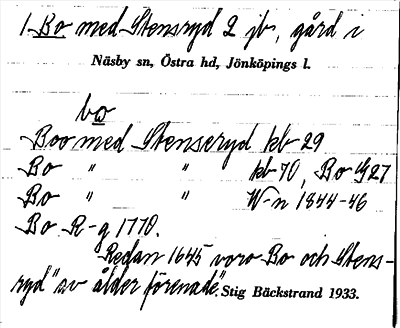 1. Bo med Stensryd 2 jb, gård i
Näsby sn, Östra hd, Jönköpings l.
bo
Boo med Stenseryd kb 29
Bo " " kb 70, Bo G27
Bo " " W-n 1844-46
Bo R-g 1770.
Redan 1645 voro Bo och Stens-
ryd "av ålder förenade". Stig Bäckstrand 1933.